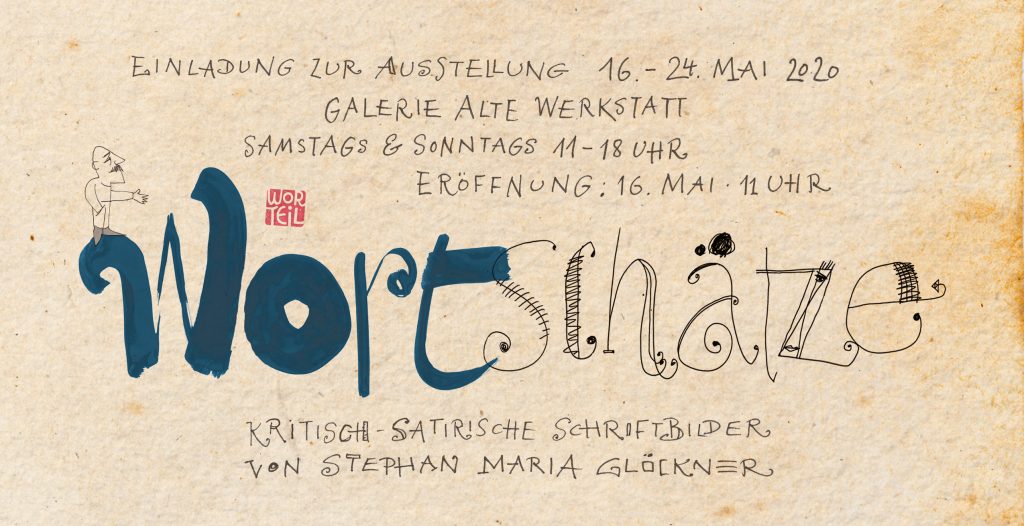 EINLADUNG ZUR AUSSTELLUNG 16.-24. MAI 2020
GALERIE ALTE WERKSTATT
SAMSTAGS & SONNTAGS 11-18 UHR
ERÖFFNUNG: 16. MAI · 11 UHR
WOR
TEIL
Wortschätze
KRITISCH-SATIRISCHE SCHRIFTBILDER
VON STEPHAN MARIA GLÖCKNER